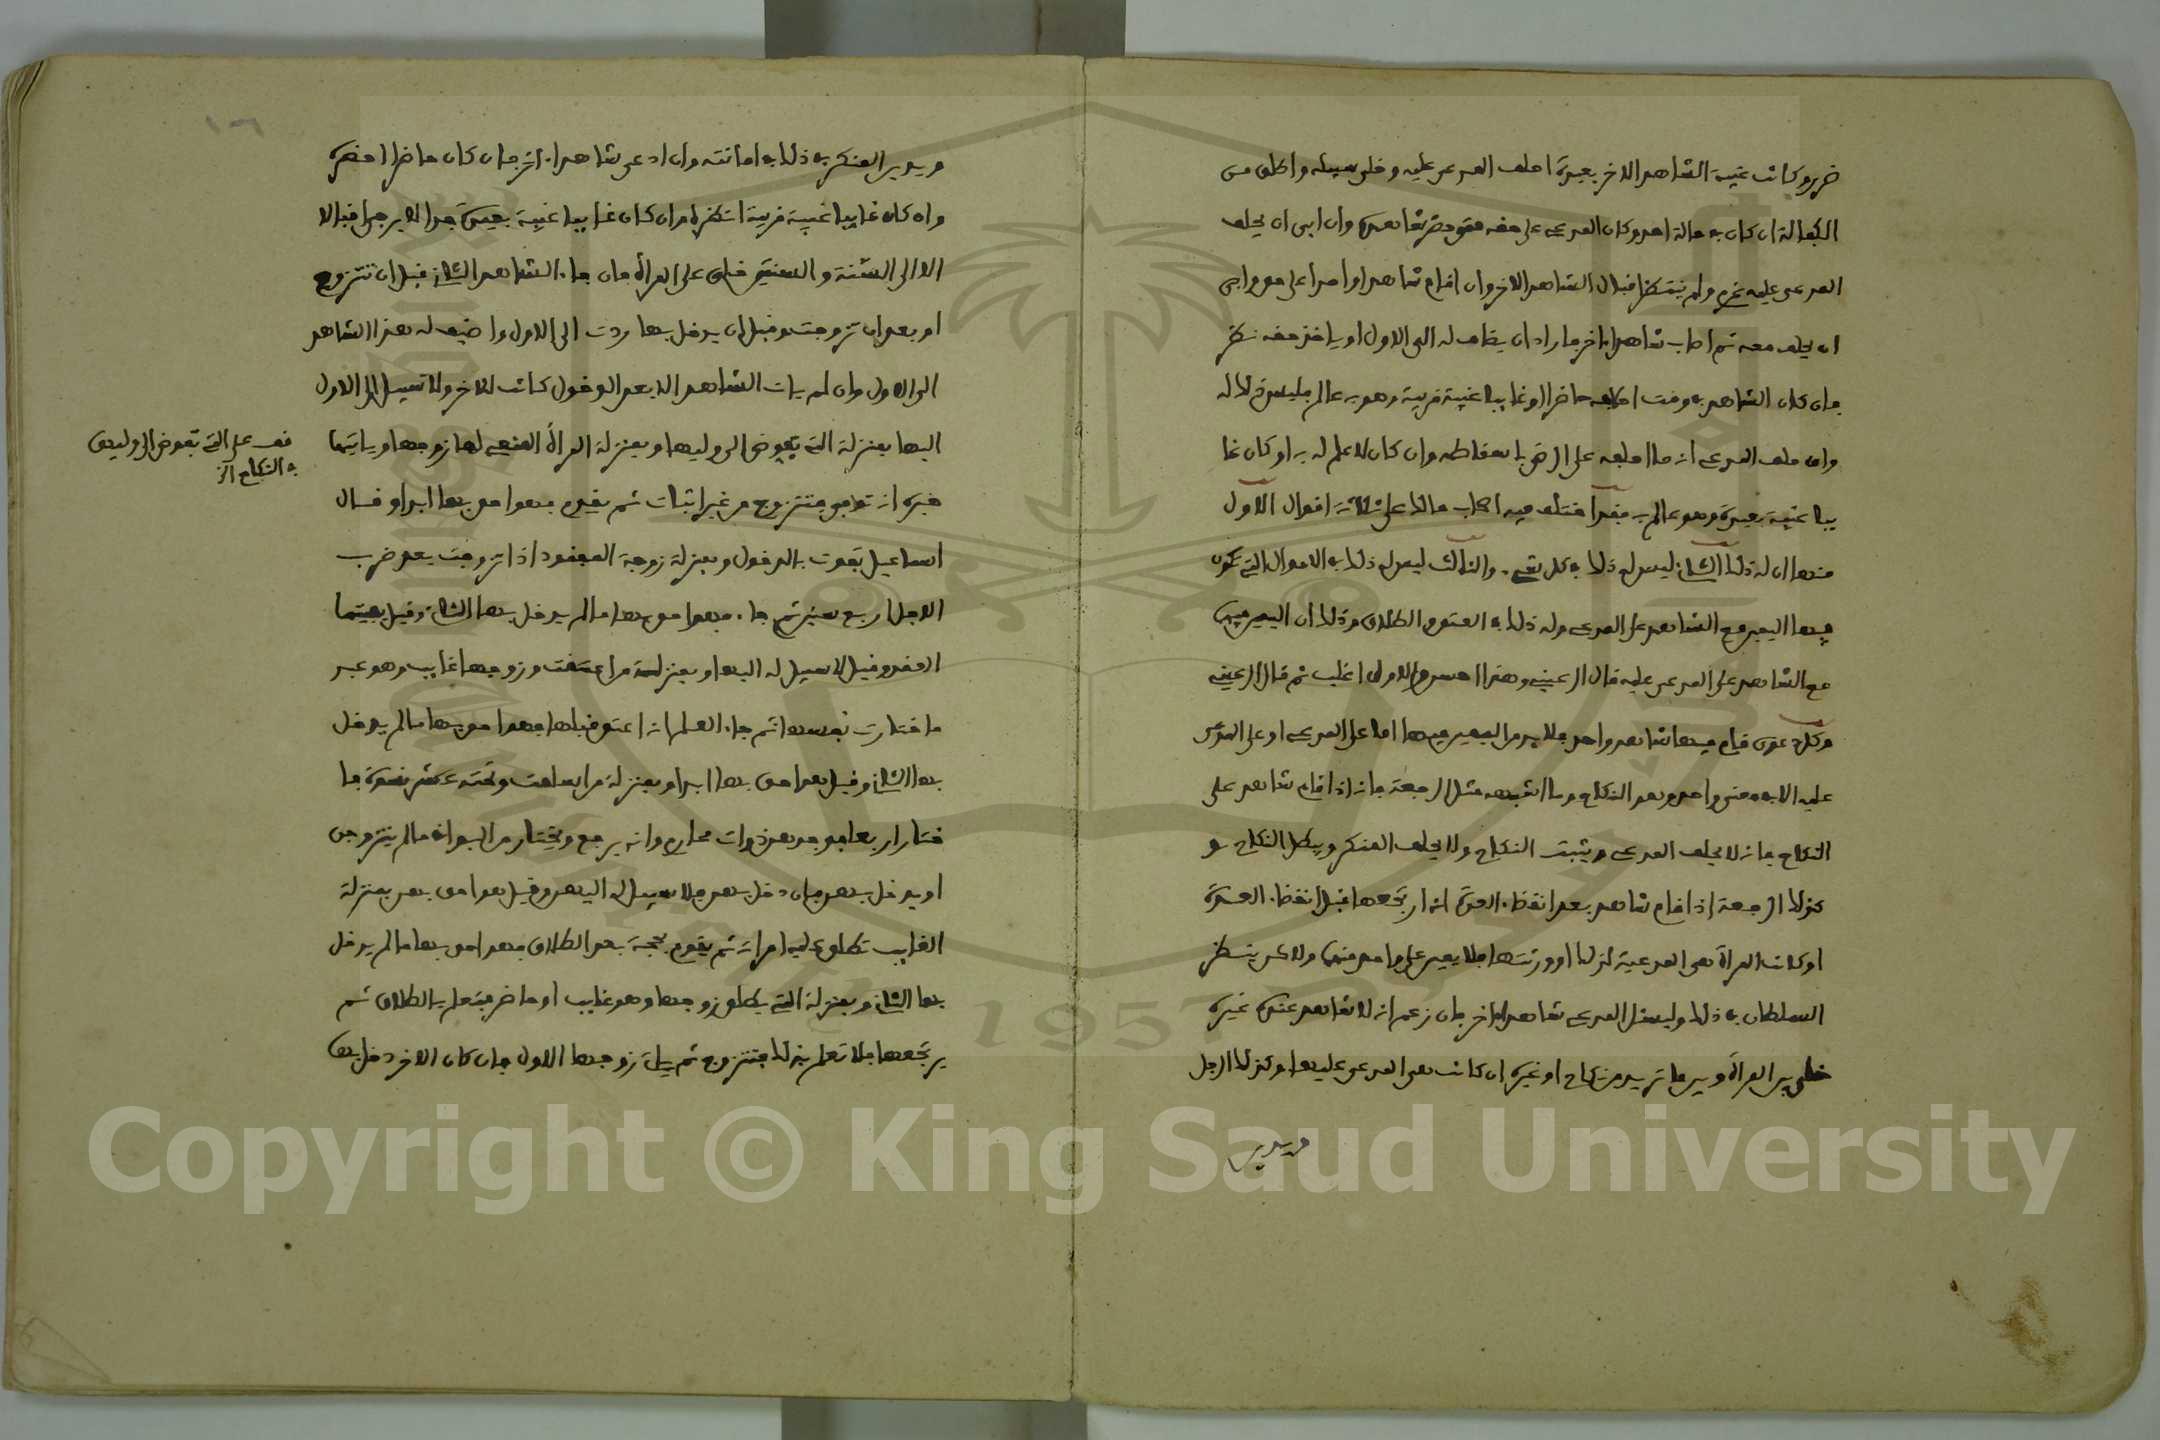 ضرر وكانت غيبة الشاهد الاخر بعيدة احلف المدعى عليه وخلى سبيله واطلق من
الكفالة ان كان به حالة احد وكان المدعى على حقه متى حضر شاهده وان ابى ان يحلف
المدعى عليه غرم ولم ينتظر اقبال الشاهد الاخر وان اقام شاهدا واحدا على حق وابى
ان يحلف معه ثم اصاب شاهدا اخر فاراد ان يضاف له الى الاول او ياخذ حقه نظر
فان كان الشاهد في وقت احلافه حاضرا او غايبا غيبة قريبة وهو به عالم فليس ذلك له
وان حلف المدعى انه ما احلفه على الرضى باسقاطه وان كان لا علم له به او كان غا
يبا غيبة بعيدة وهو عالم به فقد اختلف فيه اصحاب مالك على ثلاثة اقوال الاول
منها ان له ذلك الثاني ليس له ذلك في كل شيء والثالث ليس له ذلك في الاموال التي تكون
فيها اليمين مع الشاهد على المدعى وله ذلك في العتق والطلاق وذلك ان اليمين فيهن
مع الشاهد على المدعى عليه قال الرعيني وهذا احسن والاولى اغلب ثم قال الرعيني
وكل دعوى قام فيها شاهد واحد فلا بد من اليمين فيها اما على المدعى او على المدعى
عليه الا في معنى واحد وهو النكاح وما اشبهه مثل الرجعة فانه اذا قام شاهد على
النكاح فانه لا يحلف المدعى ويثبت النكاح ولا يحلف المنكر ويبطل النكاح و
كذلك الرجعة اذا قام شاهد بعد انقضاء العدة انه ارتجعها قبل انقضاء العدة
او كانت المراة هي المدعية لذلك او ورثتها فلا يمين على واحد منهما ولاكن ينظر
السلطان في ذلك وليسئل المدعى شاهدا اخر فان زعم انه لا شاهد عنده غيره
خلى بين المراة وبين ما تريد من نكاح او غيره ان كانت هي المدعى عليها وكذلك الرجل
ويدين
ويدين المنكر في ذلك في امانته وان ادعى شاهدا اخر فان كان حاضرا احضره
وان كان غايبا غيبة قريبة انتظره وان كان غايبا غيبة بعيدة جدا لا يرجى اقبالا
الا الى السنة والسنتين خلى على المراة فان جاء الشاهد الثاني قبل ان تتزوج
او بعد ان تزوجت وقبل ان يدخل بها ردت الى الاول واضيف له هذا الشاهد
الى الاول وان لم يات الشاهد الا بعد الدخول كانت للاخر ولا سبيل الى الاول
اليها بمنزلة التي يفوض الى وليها وبمنزلة المراة المنعي لها زوجها وياتيها
خبره انه توفي فتتزوج من غير اثبات ثم يقدم فهو احق بها ابدا وقال
اسماعيل تفوت بالدخول وبمنزلة زوجة المفقود اذا تزوجت بعد ضرب
الاجل اربع سنين ثم جاء فهو احق بها ما لم يدخل بها الثاني وقيل يفيتها
العقد وقيل لا سبيل له اليها وبمنزلة من اعتقت وزوجها غايب وهو عبد
فاختارت نفسها ثم جاء العلم انه اعتق قبلها فهو احق بها ما لم يدخل
بها الثاني وقيل هو احق بها ابدا وبمنزلة من اسلمت وتحته عشر نسوة فا
ختار اربعا فوجدهن ذوات محارم وانه يرجع ويختار من البواقي ما لم يتزوجن
او يدخل بهن فان دخل بهن فلا سبيل له اليهن وقيل هو احق بهن بمنزلة
الغايب تطلق عليه امراته ثم يقدم بحجة بعد الطلاق فهو احق بها ما لم يدخل
بها الثاني وبمنزلة التي يطلق زوجها وهو غايب او حاضر فتعلم بالطلاق ثم
يرتجعها فلا تعلم بذلك فتتزوج ثم ياتي زوجها الاول فان كان الاخر دخل بها
قف على التي تفوض الى وليها
في النكاح الخ